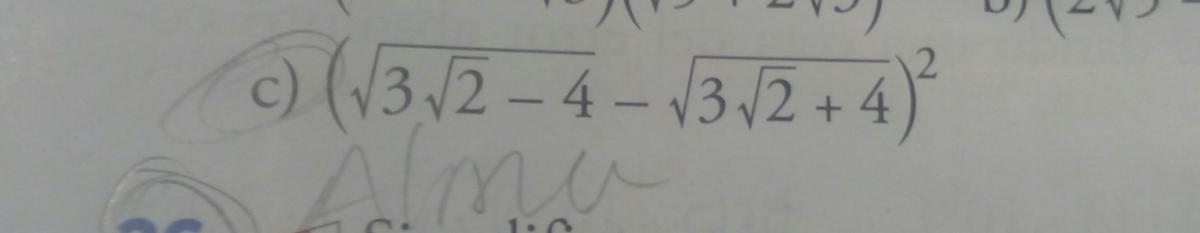 c) (√(3√2 − 4) − √(3√2 + 4))²
Alma